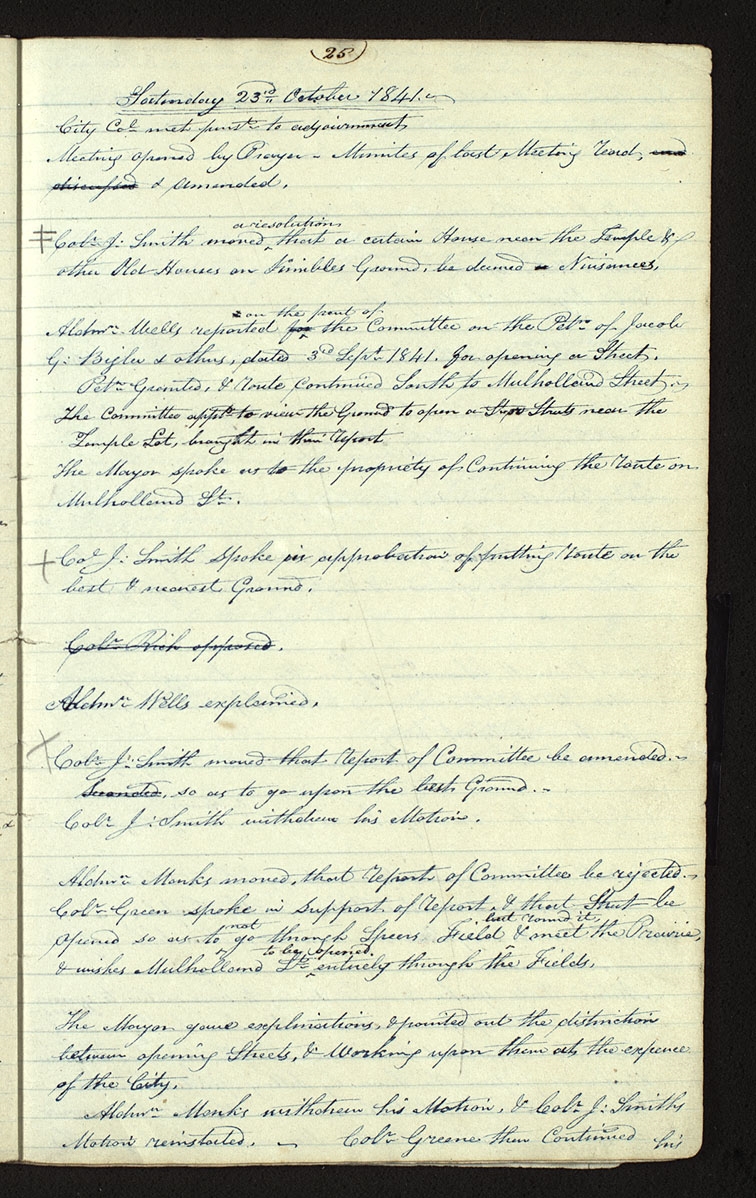 25
Saturday 23rd October 1841.
City Col. met purst. to adjournment
Meeting opened by Prayer - Minutes of last Meeting read, and
discussed & amended.
a resolution
Colr. J: Smith moved, that a certain House near the Temple &
other Old Houses on Kimbles Ground, be deemed a Nuisances,
on the part of
Aldmn. Wells reported for the Committee on the Petn. of Jacob
G: Bigler & others, dated 3rd Sept. 1841. for opening a Street.
Petn. Granted, & Route Continued South to Mulholland Street.
The Committee apptd. to view the Ground to open a Streets near the
Temple Lot, brought in their Report
The Mayor spoke as to the propriety of Continuing the Route on
Mulholland St.
Col. J: Smith spoke in approbation of putting Route on the
best & nearest Ground.
Colr. Rich opposed.
Aldmn. Wells explained.
Colr. J: Smith moved that Report of Committee be amended.
Seconded, so as to go upon the best Ground.
Colr. J: Smith withdrew his Motion.
Aldmn. Marks moved, that Report of Committee be rejected.
Colr. Green spoke in Support of Report, & that Street be
not but round it,
opened so as to go through Speers Field & meet the Prairie,
to be opened.
& wishes Mulholland St. entirely through the Fields.
The Mayor gave explinations, & pointed out the distinction
between opening Streets, & Working upon them at the expence
of the City.
Aldmn. Marks withdrew his Motion, & Colr. J: Smiths
Motion reinstated. - Colr. Greene then Continued his